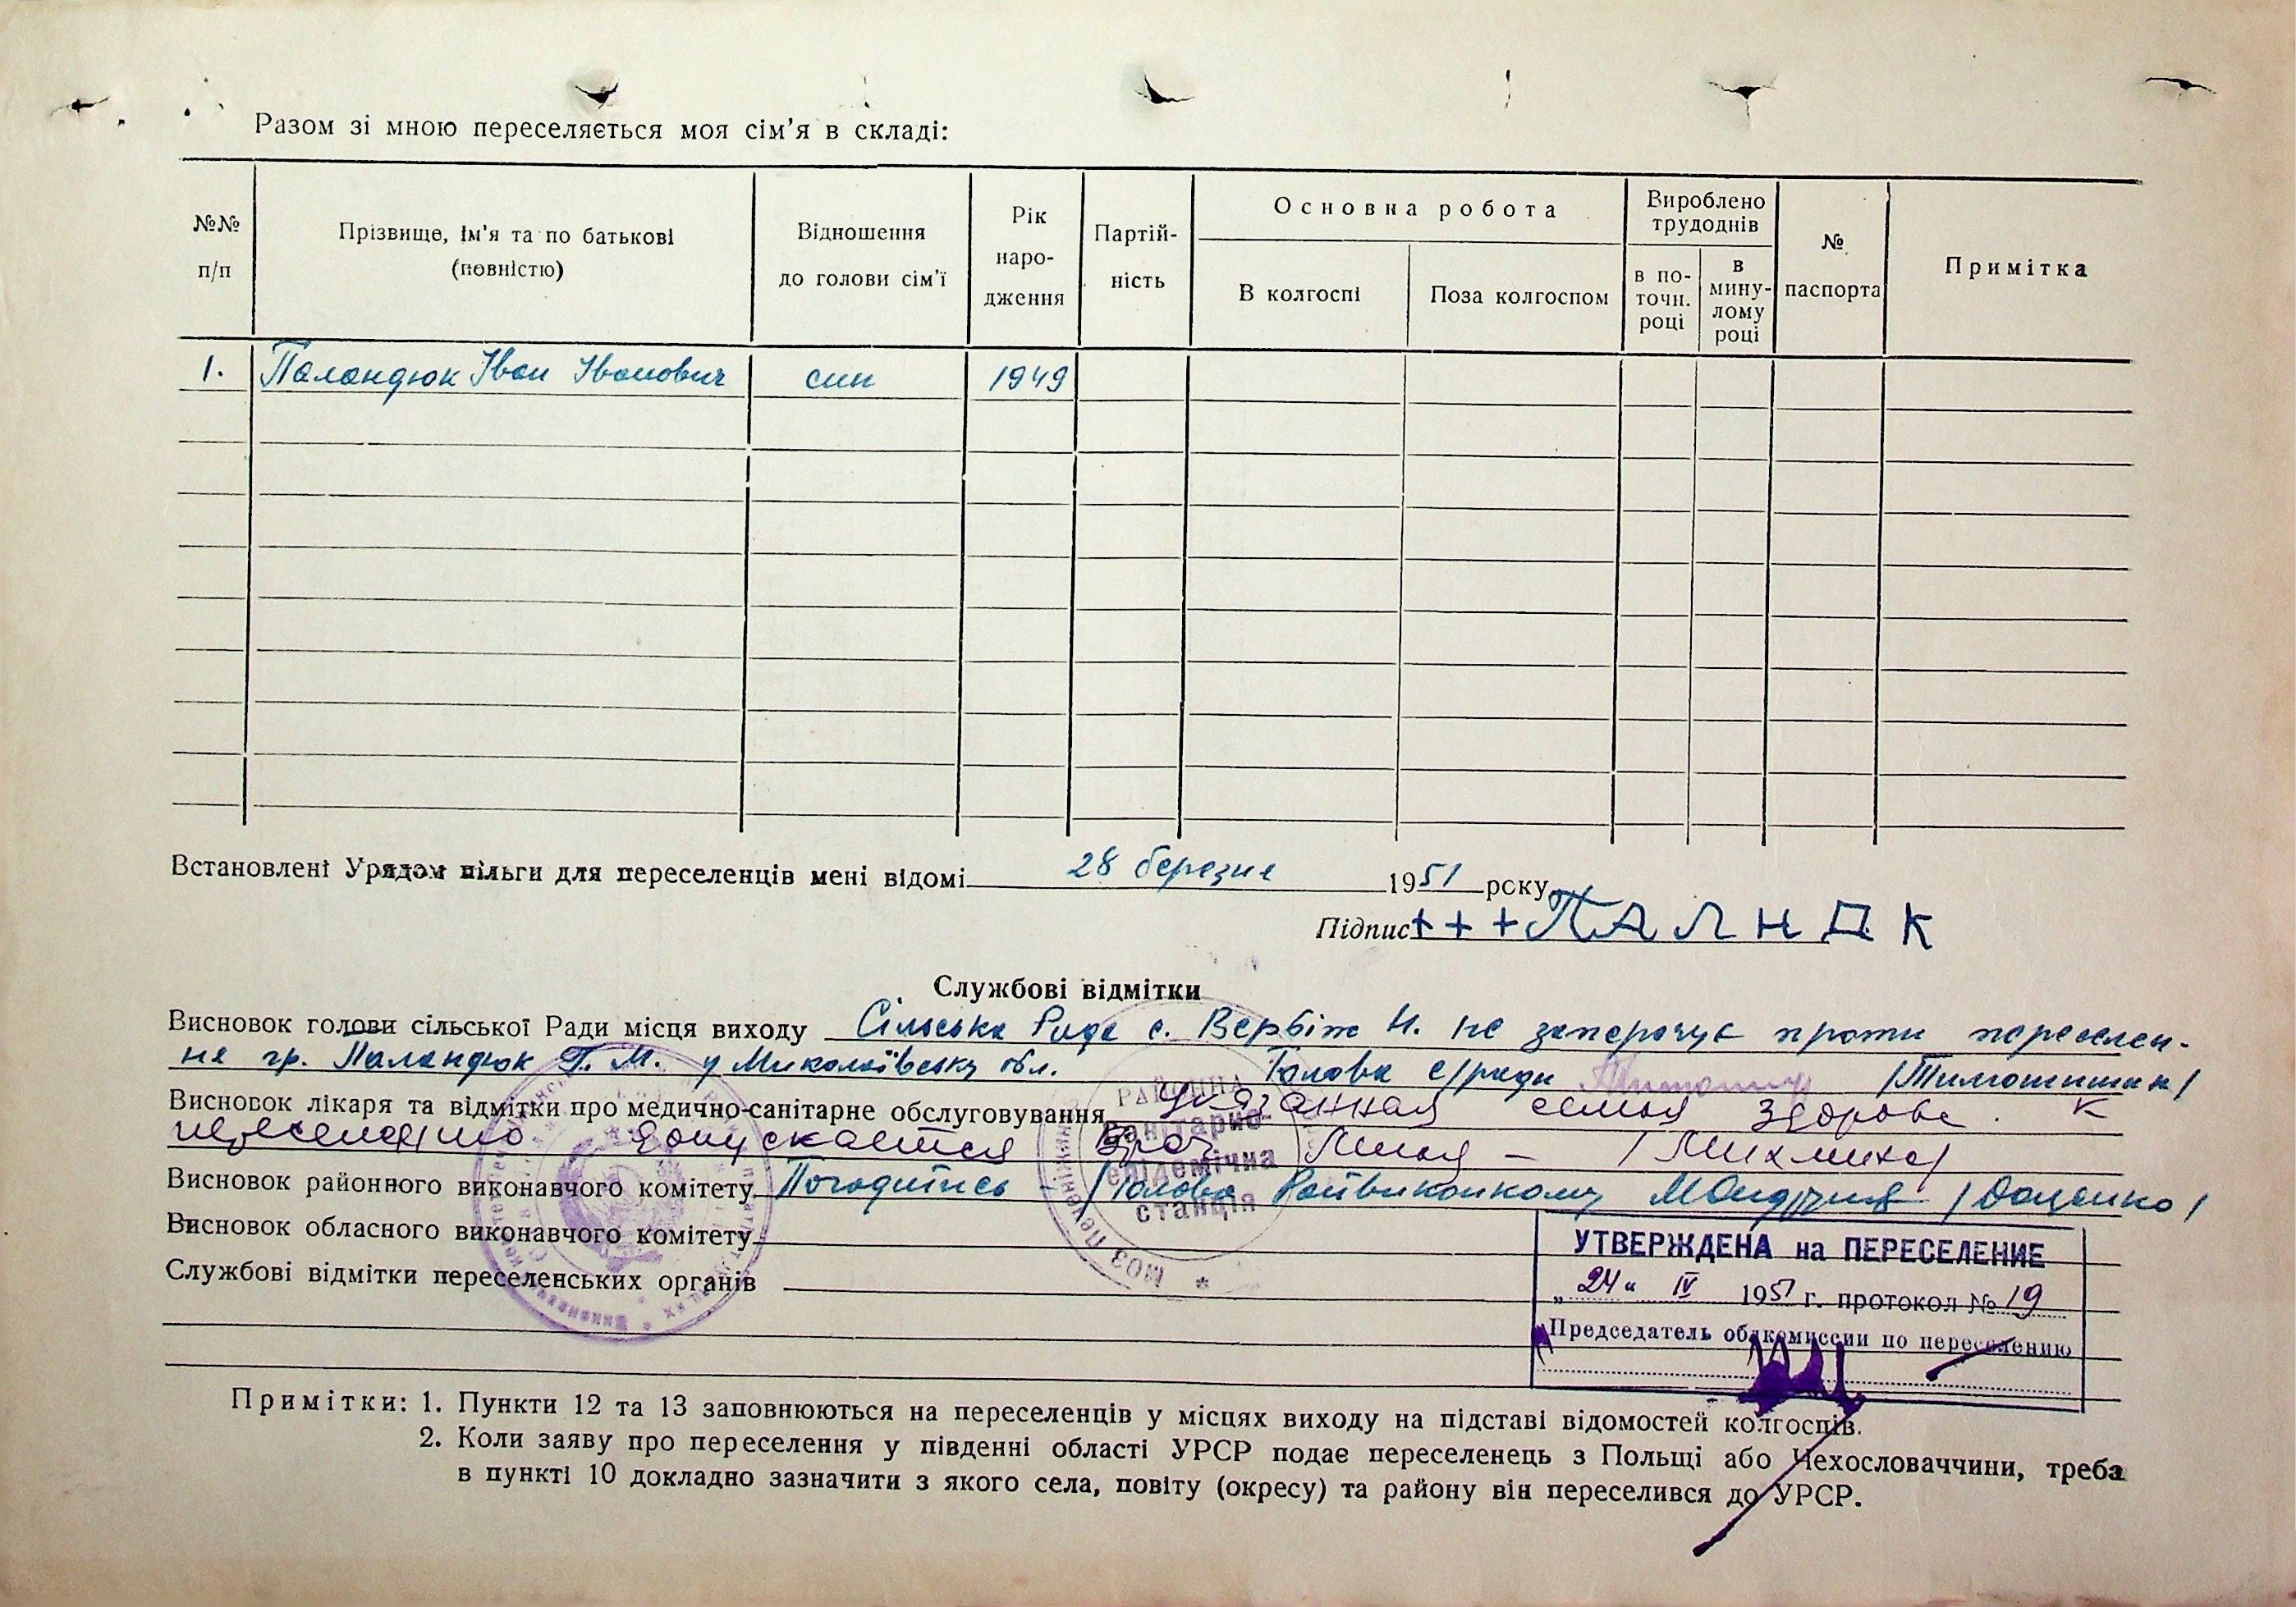 Разом зі мною переселяється моя сім'я в складі:
№№ п/п
Прізвище, ім'я та по батькові (повністю)
Відношення до голови сім'ї
Рік народження
Партійність
Основна робота
В колгоспі
Поза колгоспом
Вироблено трудоднів
в поточн. році
в минулому році
№ паспорта
Примітка
1. Паландюк Іван Іванович син 1949
Встановлені Урядом пільги для переселенців мені відомі 28 березня 1951 року
Підпис +++ ПАЛНДК
Службові відмітки
Висновок голови сільської Ради місця виходу Сільська Рада с. Вербіж Н. не заперечує проти переселен-
ня гр. Паландюк П. М. у Миколаївську обл. Голова с/ради /Тимошишин/
Висновок лікаря та відмітки про медично-санітарне обслуговування Указанная семья здорова. К
переселению допускается Врач
Висновок районного виконавчого комітету Погодитись - /Голова Райвиконкому /Доценко/
Висновок обласного виконавчого комітету
Службові відмітки переселенських органів
РАЙОННА
Санітарно-
епідемічна
станція
МОЗ
УТВЕРЖДЕНА на ПЕРЕСЕЛЕНИЕ
„24" IV 1951 г. протокол № 19
Председатель облкомиссии по переселению
Примітки: 1. Пункти 12 та 13 заповнюються на переселенців у місцях виходу на підставі відомостей колгоспів.
2. Коли заяву про переселення у південні області УРСР подає переселенець з Польщі або Чехословаччини, треба
в пункті 10 докладно зазначити з якого села, повіту (окресу) та району він переселився до УРСР.